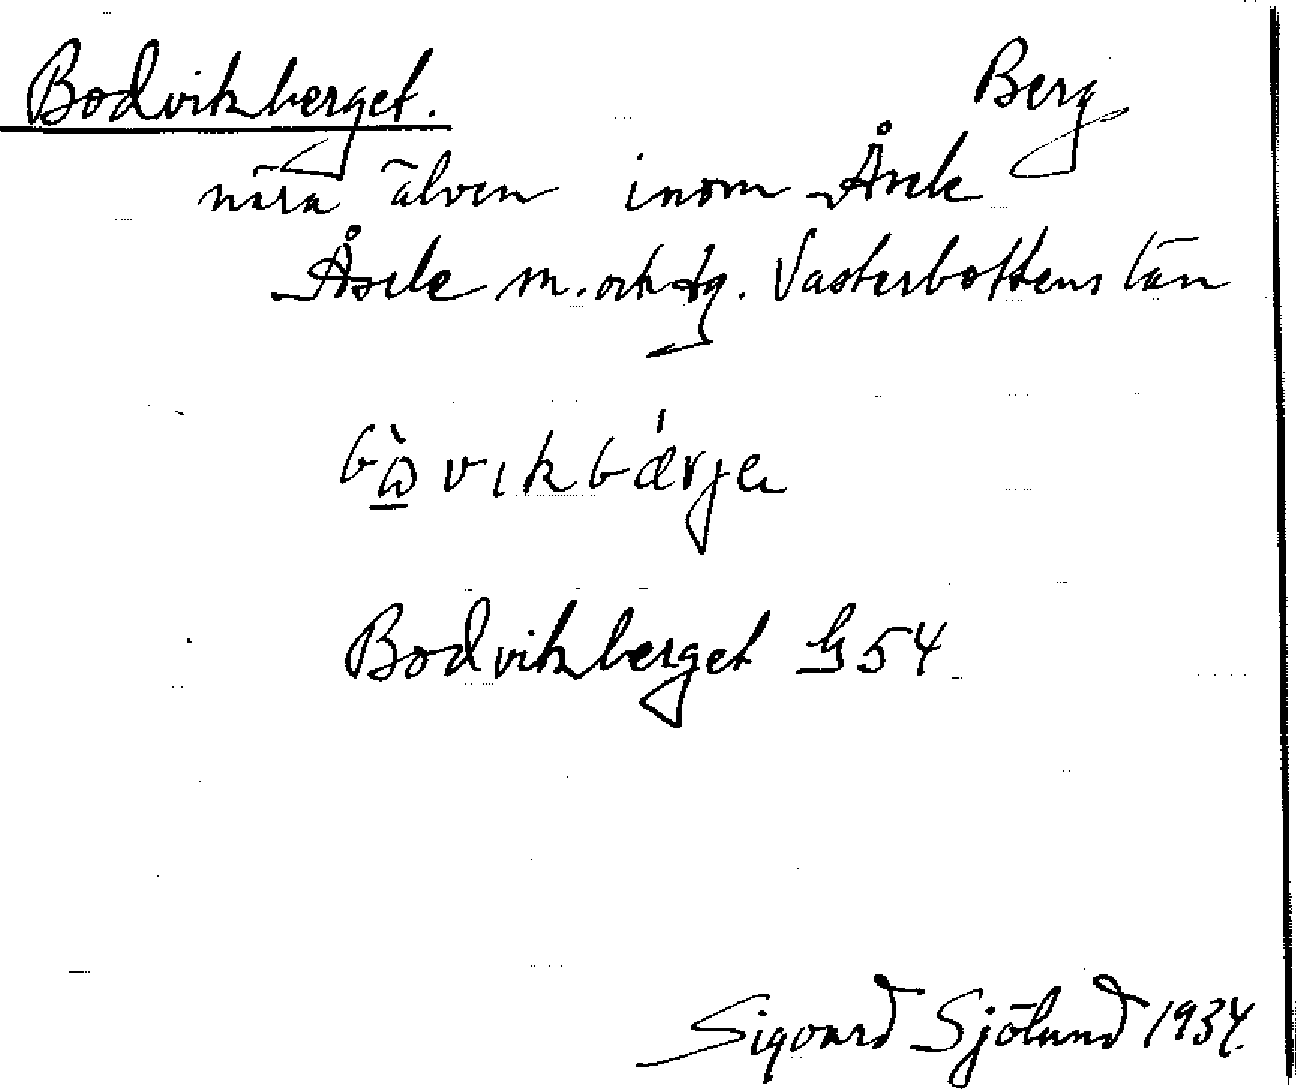 Bodvikberget. Berg
nära älven inom Åsele
Åsele m. och tg. Västerbottens län
bɷ̀vıkbǽrjɐ
Bodvikberget G54
Sigvard Sjölund 1934.